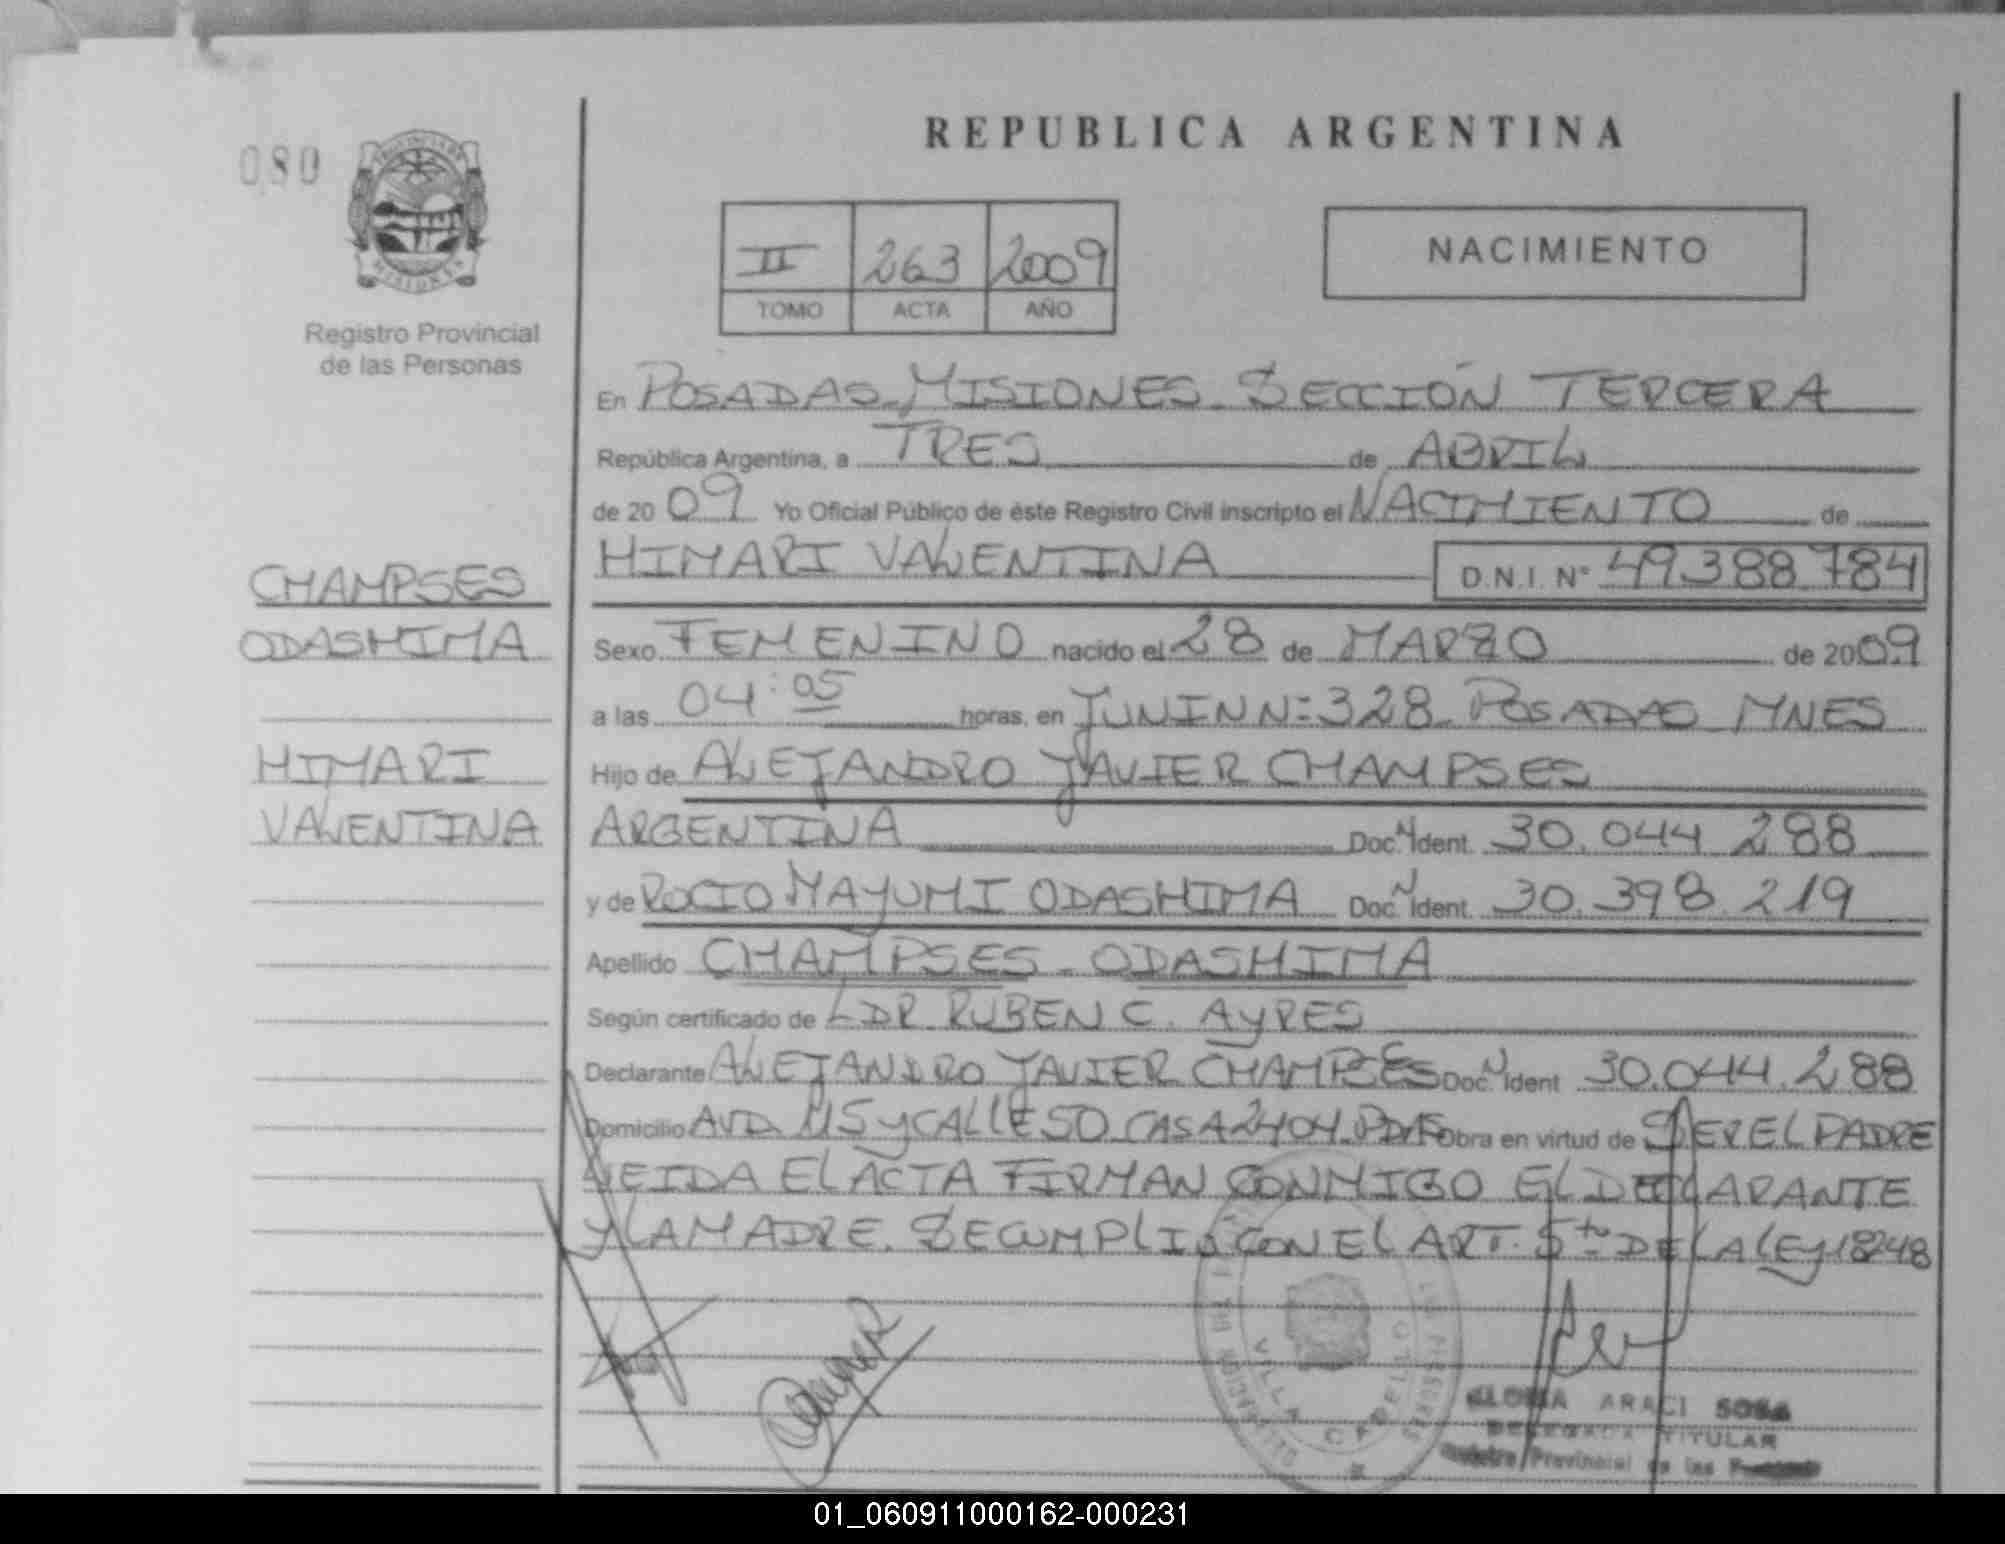 080
REPUBLICA ARGENTINA
II 263 2009
TOMO ACTA AÑO
NACIMIENTO
Registro Provincial
de las Personas
En POSADAS MISIONES SECCIÓN TERCERA
República Argentina, a TRES de ABRIL
de 2009 Yo Oficial Público de éste Registro Civil inscripto el NACIMIENTO de
HIMARI VALENTINA D.N.I. N° 49388784
CHAMPSES
ODASHIMA
HIMARI
VALENTINA
Sexo FEMENINO nacido el 28 de MARZO de 2009
a las 04:05 horas, en JUNIN Nº 328 POSADAS MNES
Hijo de ALEJANDRO JAVIER CHAMPSES
ARGENTINA Doc. N Ident. 30.044 288
y de ROCIO MAYUMI ODASHIMA Doc. N Ident. 30.398.219
Apellido CHAMPSES - ODASHIMA
Según certificado de LDR RUBEN C. AYRES
Declarante ALEJANDRO JAVIER CHAMPSES Doc. N Ident 30.044.288
Domicilio AVD. Y CALLE CASA 2404 Obra en virtud de SER EL PADRE
LEIDA EL ACTA FIRMAN CONMIGO EL DECLARANTE
Y LA MADRE. SE CUMPLIO CON EL ART. 5to DE LA LEY 18248
VILLA CABELLO
GLORIA ARACI SOSA
DELEGADA TITULAR
Registro Provincial de las Personas
01_060911000162-000231